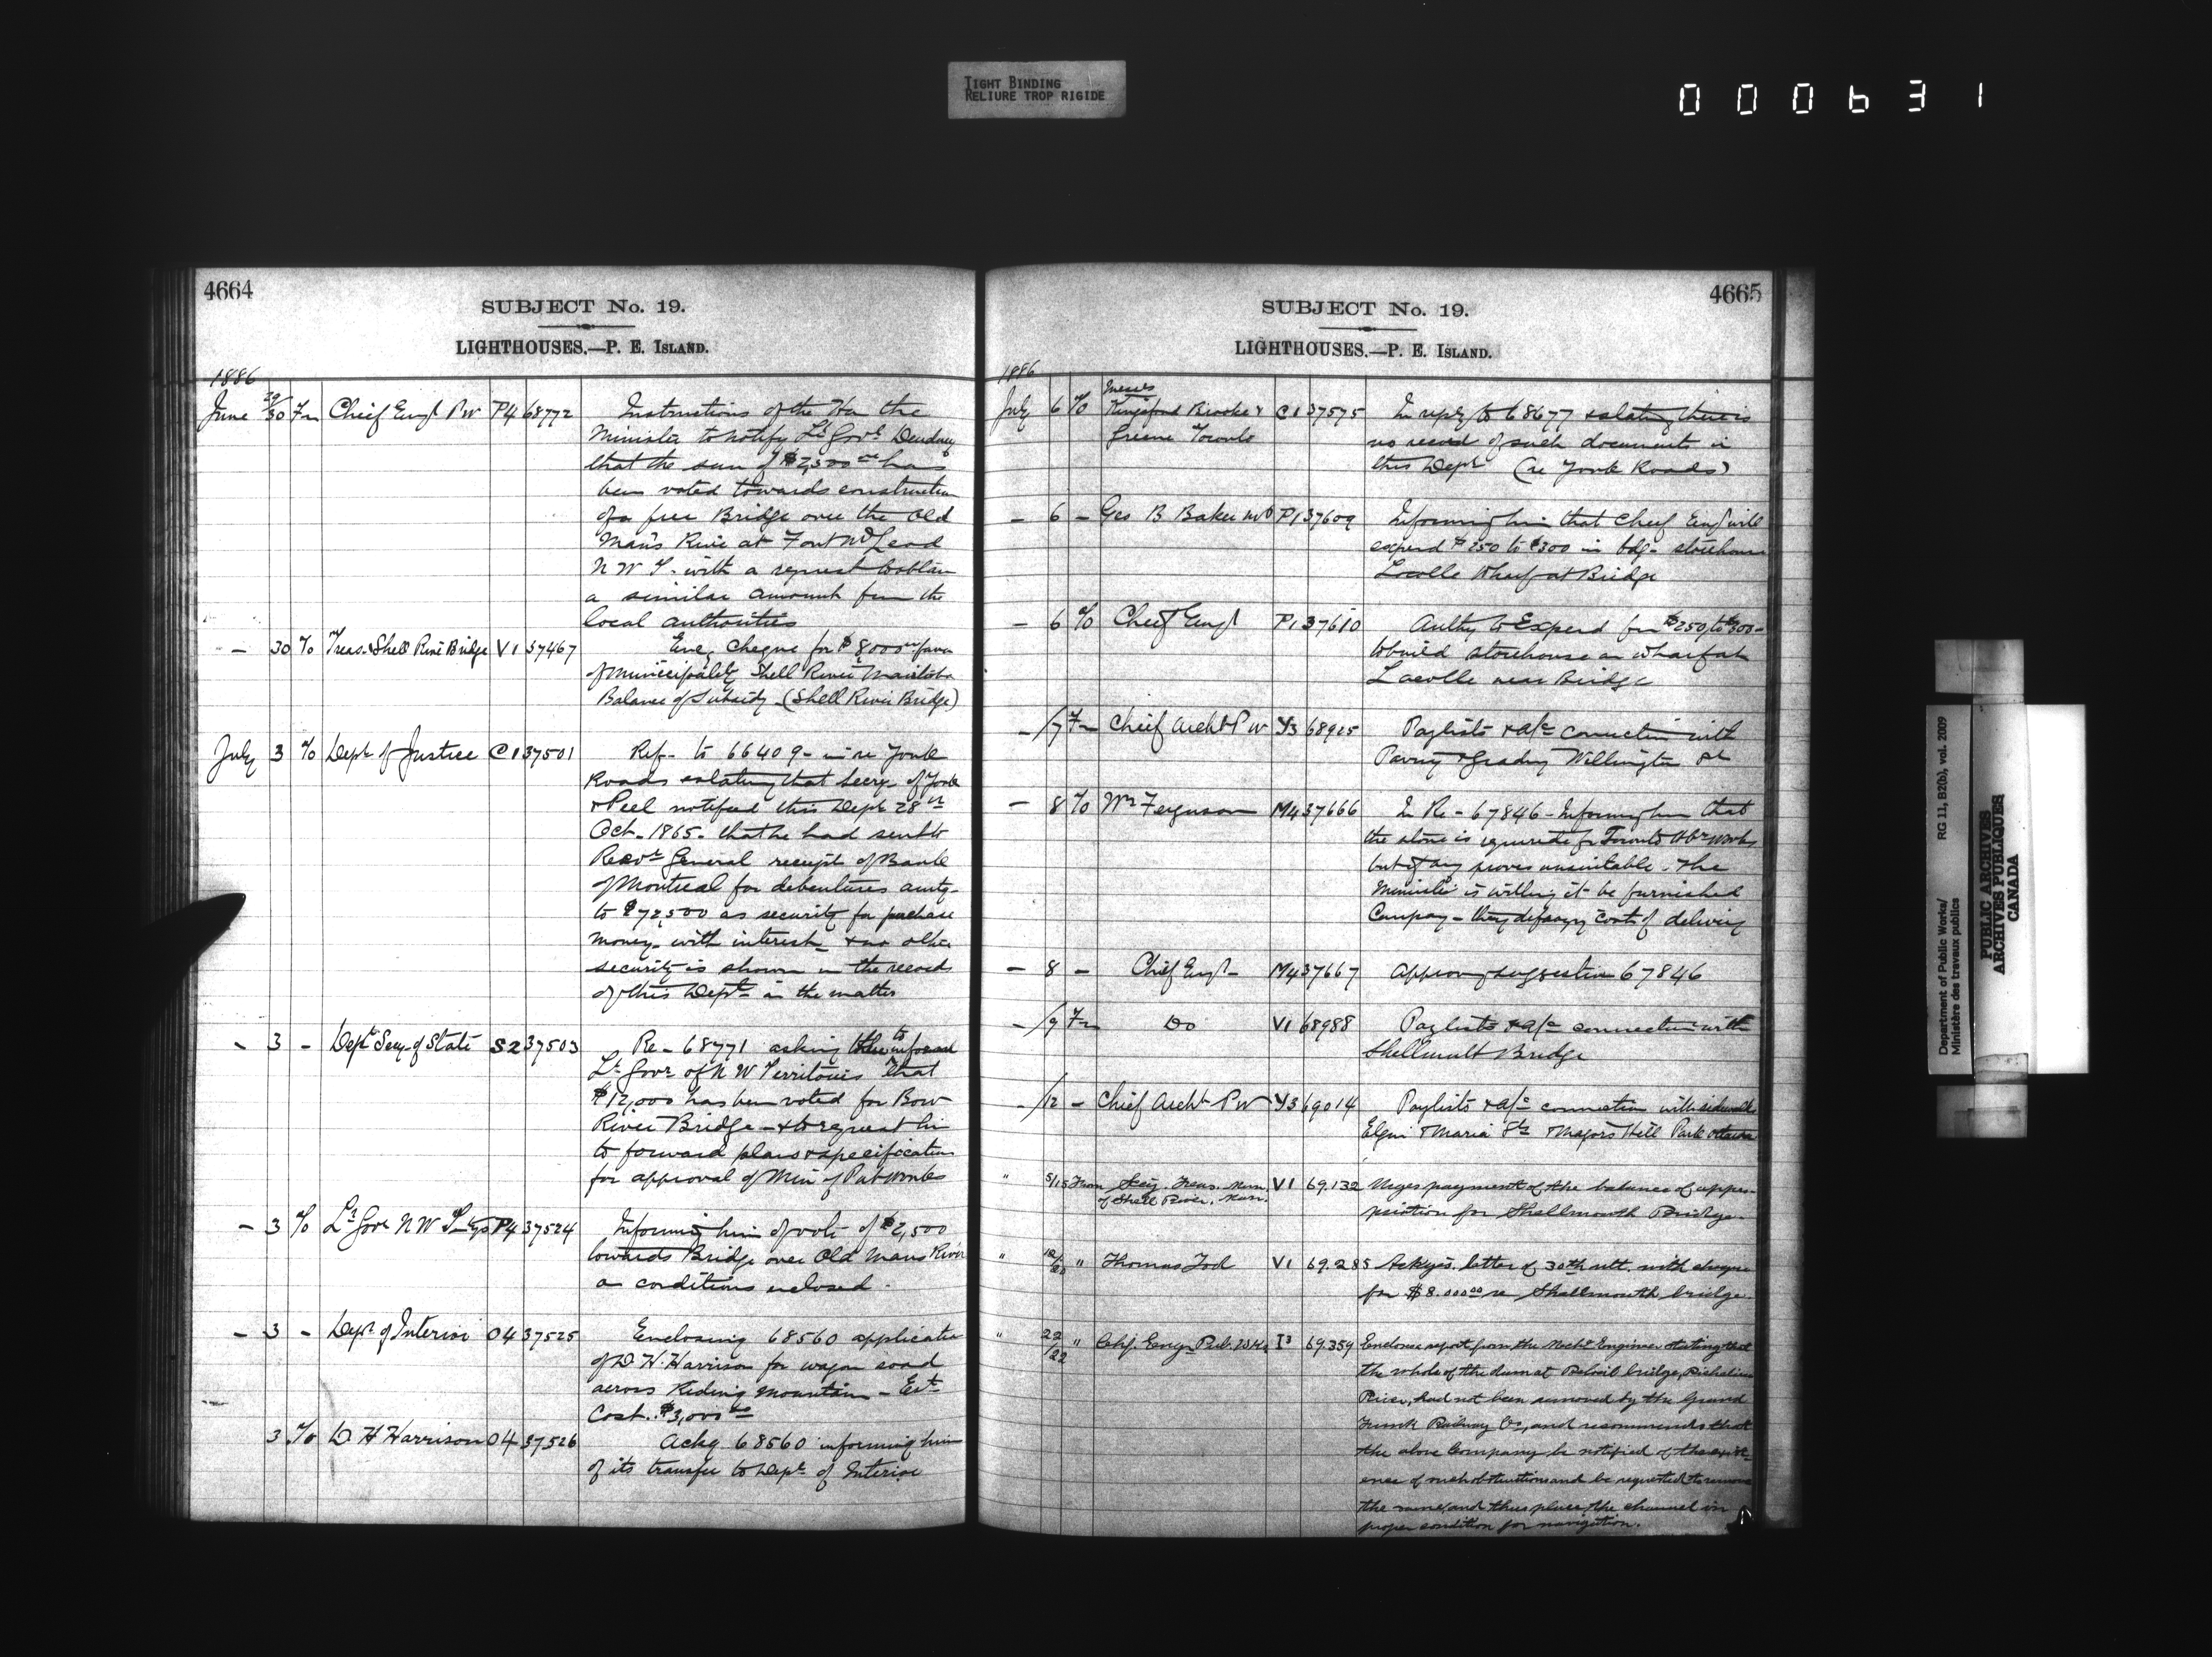 TIGHT BINDING
RELIURE TROP RIGIDE
000631
4664
SUBJECT No. 19.
LIGHTHOUSES.—P. E. ISLAND.
1886
June 29/30 Fm Chief Engr P W P4 68772 Instructions of the Hon the
Minister to notify Lt Govr Dewdney
that the sum of $2,500 00 has
been voted towards construction
of a free Bridge over the Old
Man's River at Fort McLeod
N W T. with a request to obtain
a similar amount from the
local authorities
— 30 To Treas. Shell River Bridge V1 37467 Enc. Cheque for $8000 in favor
of Municipality Shell River Manitoba
Balance of Subsidy (Shell River Bridge)
July 3 To Dept of Justice C1 37501 Ref- to 66409- in re York
Roads stating that Secy- of York
& Peel notified this Dept 28th
Oct- 1865- that he had sent to
Recvr General receipt of Bank
of Montreal for debentures amtg-
to $72,500 as security for purchase
money- with interest- & no other
security is shown in the records
of this Dept- in the matter
- 3 - Dept Secy of State S2 37503 Re- 68771 asking to inform
Lt Govr of N W Territories that
$12,000 has been voted for Bow
River Bridge- & to request him
to forward plans & specification
for approval of Min of Pub Works
- 3 To Lt Govr N W P4 37524 Informing him of vote of $2,500
towards Bridge over Old Mans River
on conditions enclosed
- 3 - Dept of Interior O4 37525 Enclosing 68560 application
of D. H. Harrison for wagon road
across Riding mountain - Est
Cost. $3,000 00
3 To D H Harrison O4 37526 Ackg 68560 informing him
of its transfer to Dept of Interior
4665
SUBJECT No. 19.
LIGHTHOUSES.—P. E. ISLAND.
1886
Messrs
July 6 To Kingsford Brooke & C1 37575 In reply to 68677 & stating there is
Greene Toronto no record of such documents in
this Dept (re York Roads)
- 6 - Geo B Baker MP P1 37609 Informing him that Chief Engr will
expend $250 to $300 in bdg- storehouse
Lacolle Wharf at Bridge
- 6 To Chief Engr P1 37610 Authy to Expend from $250 to $300-
to build storehouse on wharf at
Lacolle near Bridge
-/7 Fm Chief Archt P W Y3 68925 Paylists & a/c connection with
Paving & grading Wellington St
- 8 To Wm Ferguson M4 37666 In Re- 67846- Informing him that
the stone is required for Toronto Hbr works
but if any proves unsuitable- the
Minister is willing it be furnished
Company- they defraying costs of delivery
- 8 - Chief Engr- M4 37667 Approving suggestion 67846
-/9 Fm Do V1 68988 Paylists & a/c connection with
Shellmult Bridge
-/12 - Chief Archt P W Y3 69014 Paylists & a/c connection with sidewalks
Elgin & Maria Sts & Majors Hill Park Ottawa
" 5/15 From Secy. Treas. Mun. V1 69.132 Urges payment of the balance of appro-
of Shell River. Man. priation for Shellmouth Bridge.
" " Thomas Tod V1 69.285 Ackges. letter of 30th ult. with cheque
for $8.000 00 re Shellmouth bridge.
" 22/22 " Chf. Engr. Pub. Wks I3 69.359 Encloses report from the Mechl Engineer stating that
the whole of the dam at Beloeil bridge, Richelieu
River, had not been removed by the Grand
Trunk Railway Co., and recommends that
the above Company be notified of the exist-
ence of such obstructions and be requested to remove
the same, and thus place the channel in
proper condition for navigation.
Department of Public Works/ RG 11, B2(b), vol. 2009
Ministère des travaux publics
PUBLIC ARCHIVES
ARCHIVES PUBLIQUES
CANADA